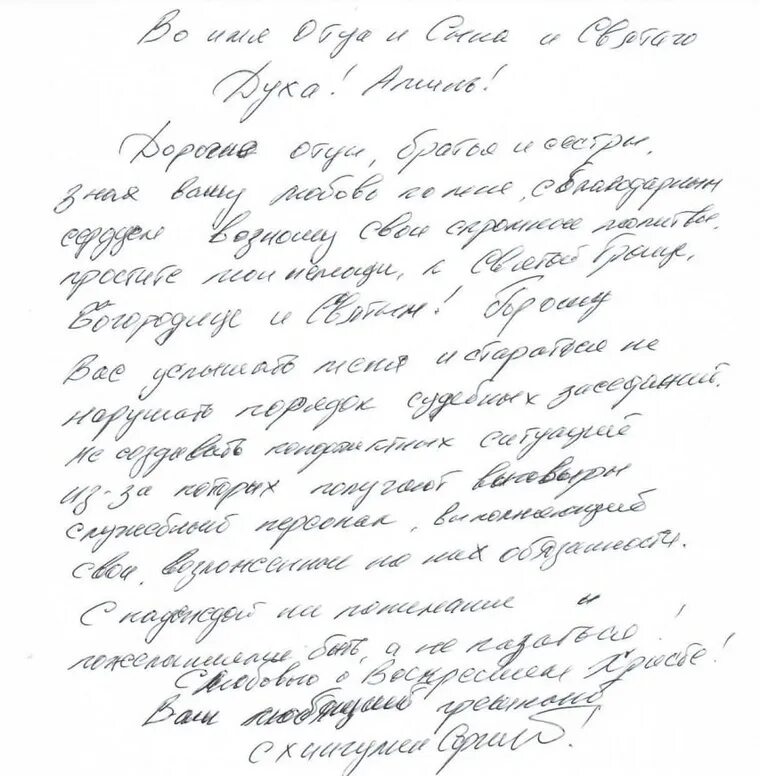 Во имя Отца и Сына и Святаго
Духа! Аминь!
Дорогие отцы, братья и сестры,
зная вашу любовь ко мне, с благодарным
сердцем возношу свои скромные молитвы,
простите мои немощи, к Святой Троице,
Богородице и Святым! Прошу
Вас услышать меня и стараться не
нарушать порядок судебных заседаний.
Не создавать конфликтных ситуаций
из-за которых получают выговоры
служебный персонал, выполняющий
свои, возложенные на них обязанности.
С надеждой на понимание и
пожеланием быть, а не казаться!
С любовью о Воскресшем Христе!
Ваш любящий грешный
схиигумен Сергий!